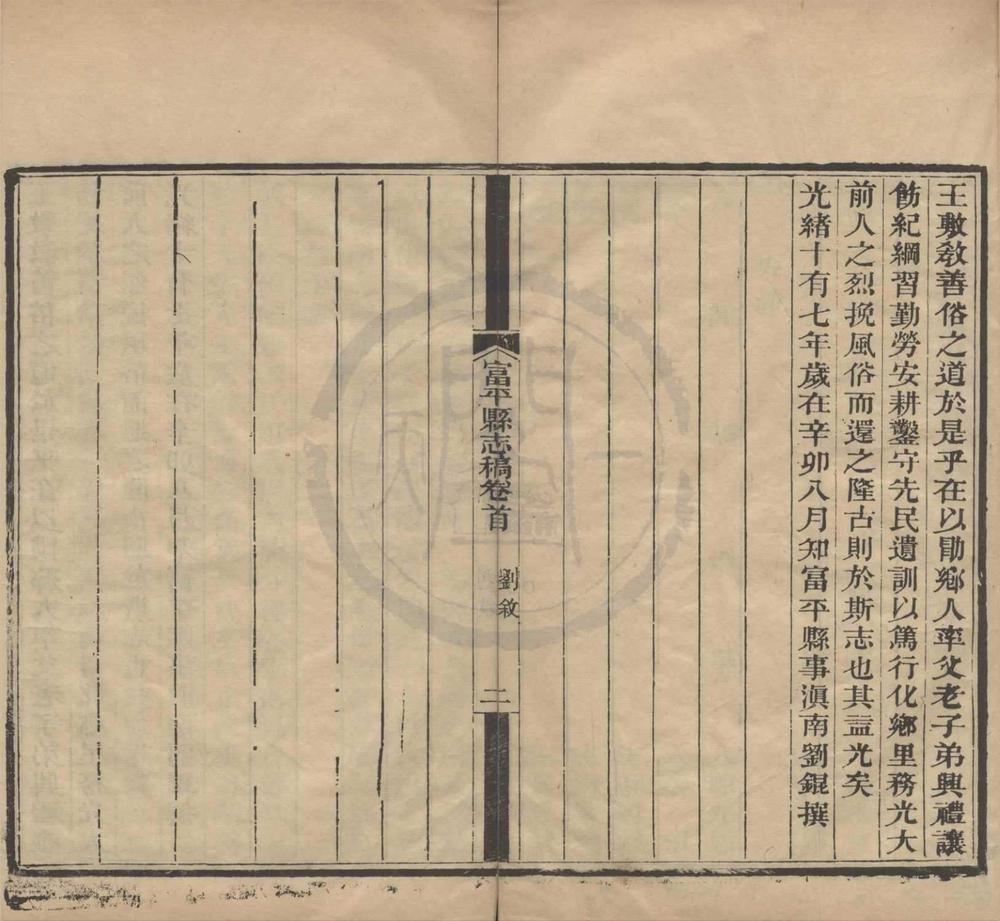 王敷敎善俗之道於是乎在以勖鄕人率父老子弟興禮讓
飭紀綱習勤勞安耕鑿守先民遺訓以篤行化鄕里務光大
前人之烈挽風俗而還之隆古則於斯志也其益光矣
光緒十有七年歲在辛卯八月知富平縣事滇南劉錕撰
富平縣志稿卷首
劉敘
二